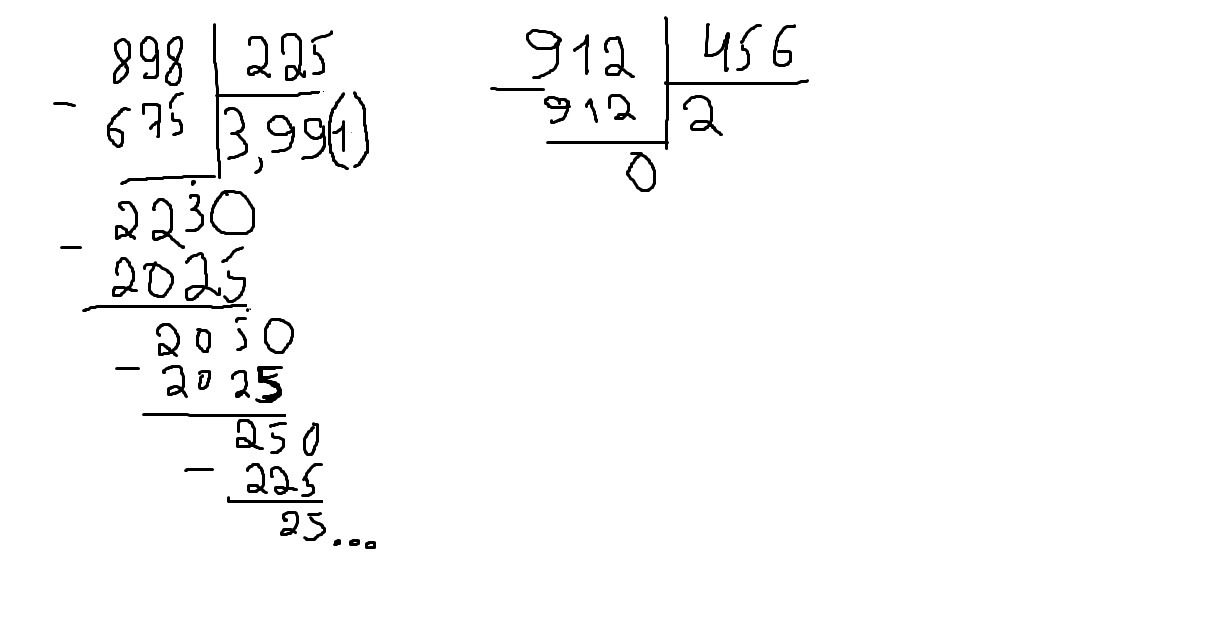 898 225
- 675 3,99(1)
2230
- 2025
2050
- 2025
250
- 225
25...
912 456
- 912 2
0